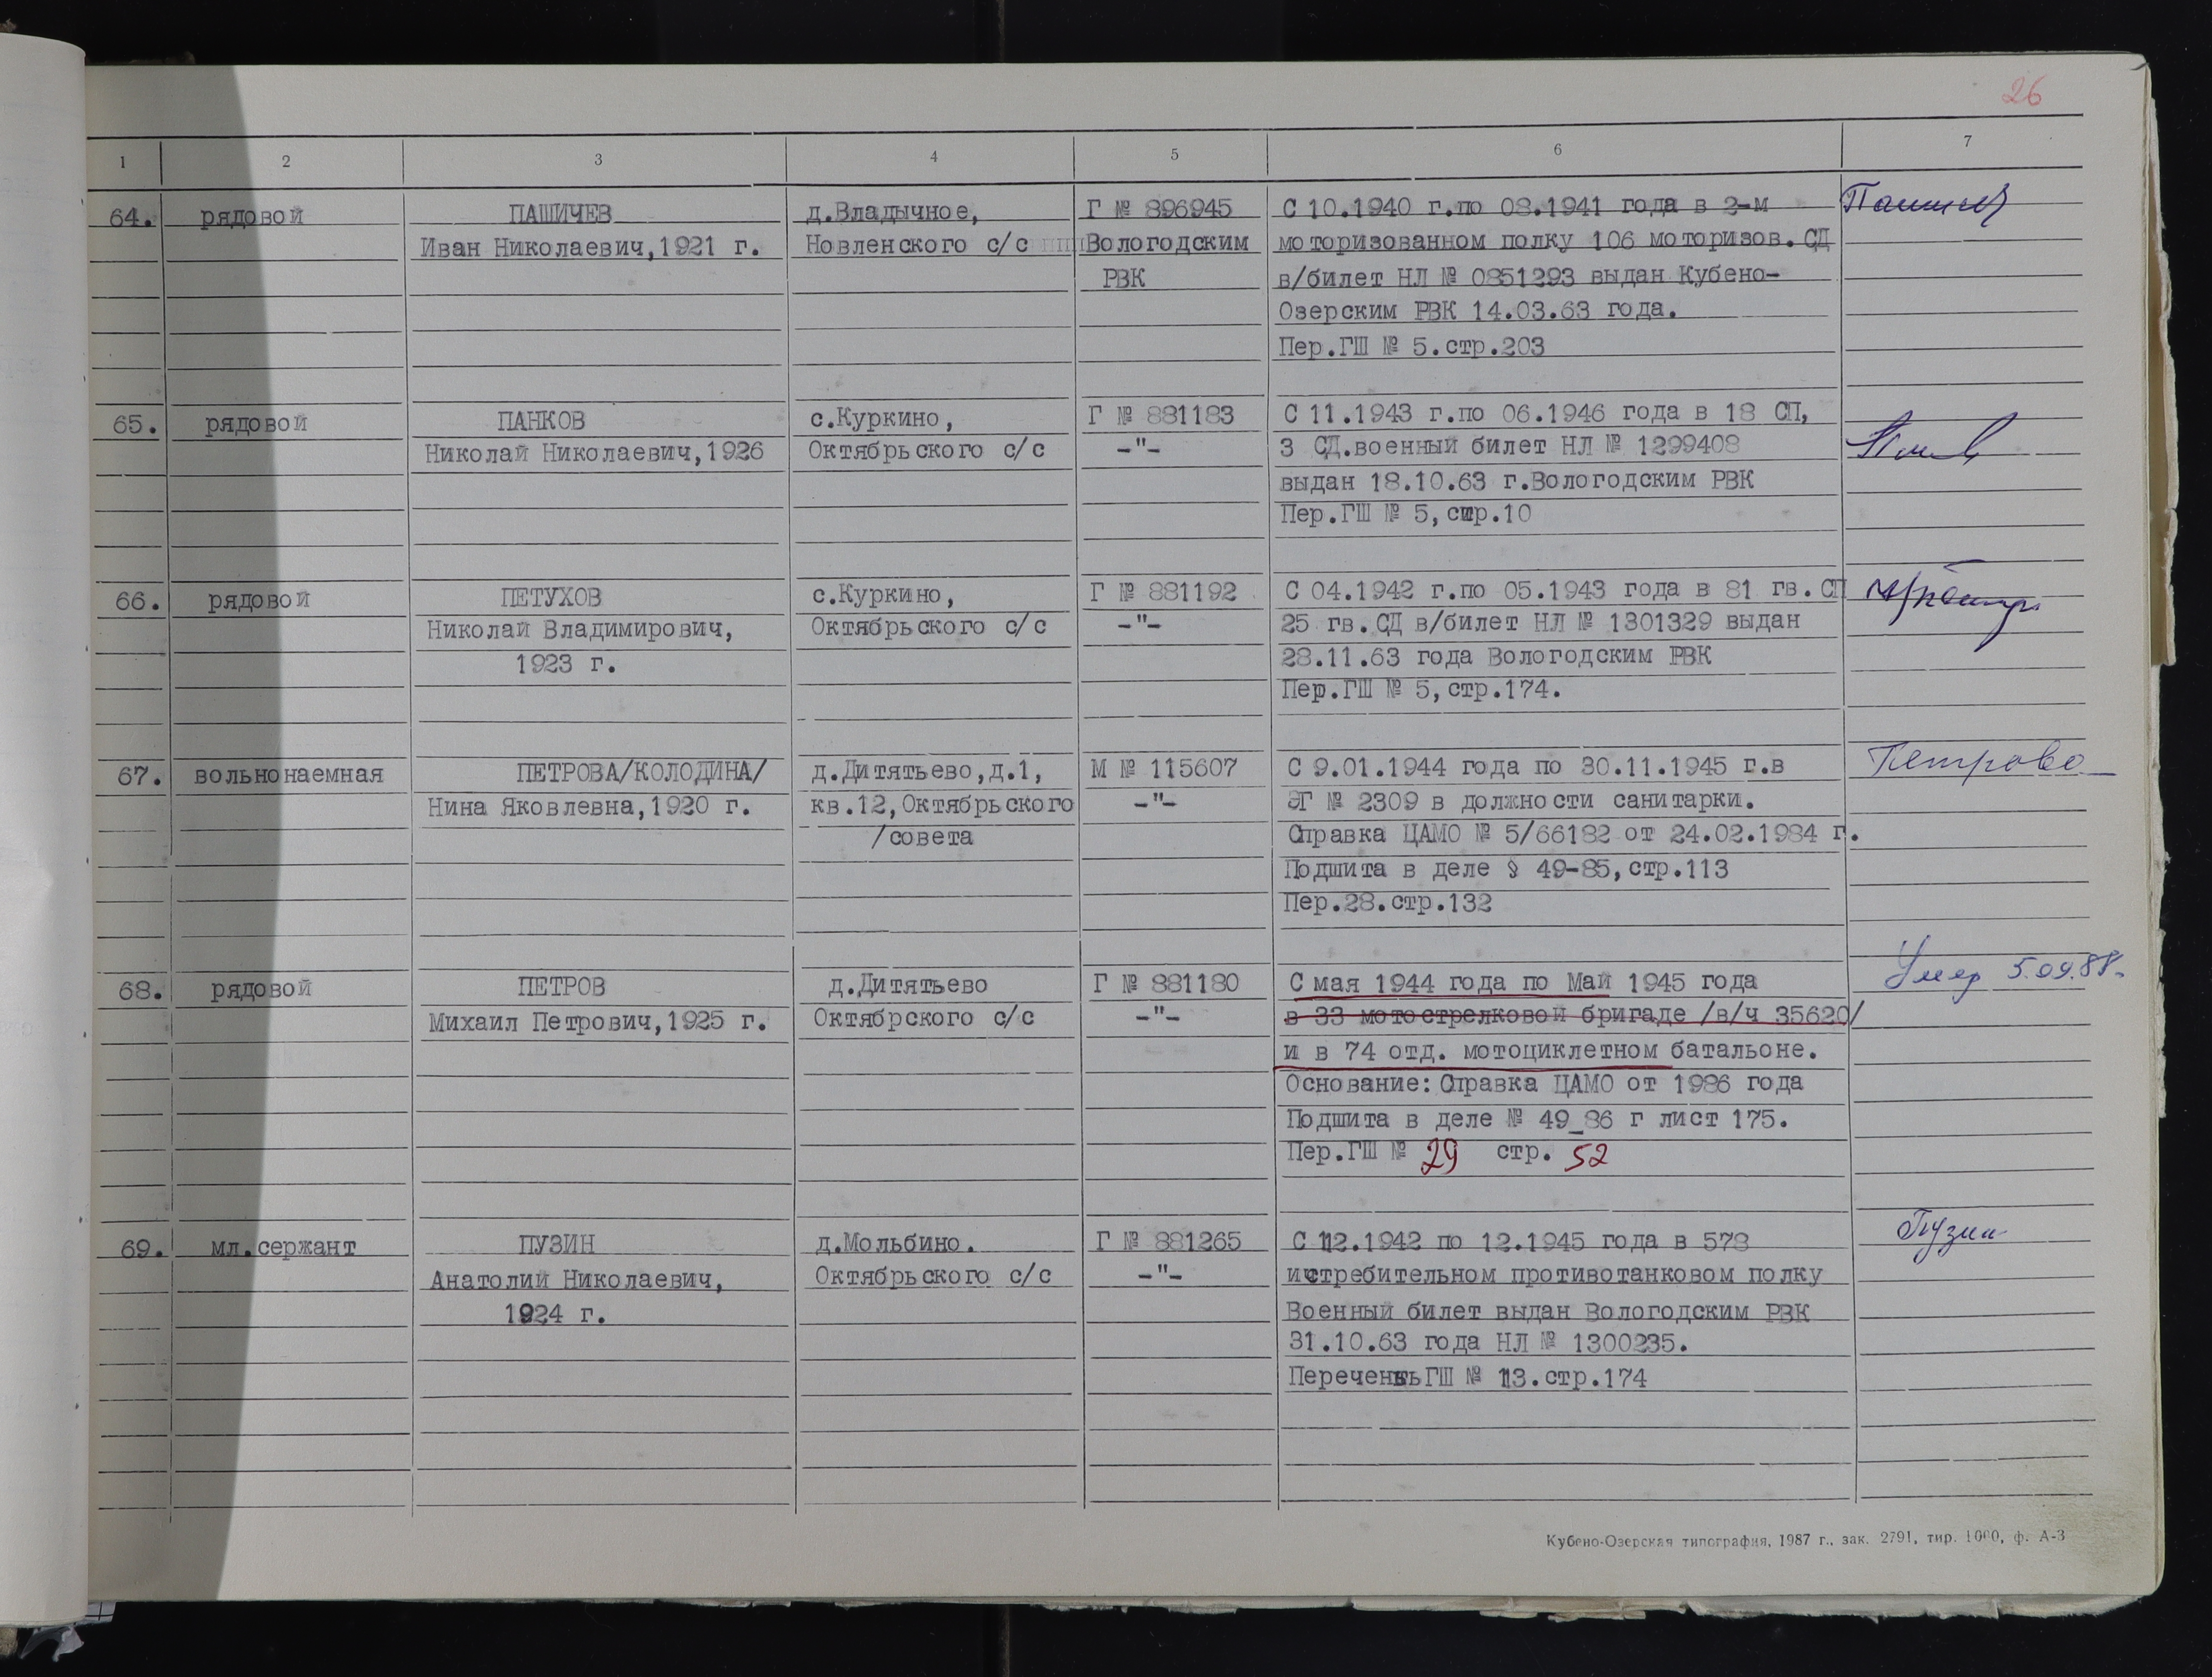 26
1 2 3 4 5 6 7
64. рядовой ПАШИЧЕВ д.Владычное, Г № 896945 С 10.1940 г.по 08.1941 года в 2-м
Иван Николаевич,1921 г. Новленского с/с Вологодским моторизованном полку 106 моторизов. СД
РВК в/билет НЛ № 0851293 выдан Кубено-
Озерским РВК 14.03.63 года.
Пер.ГШ № 5.стр.203
65. рядовой ПАНКОВ с.Куркино, Г № 881183 С 11.1943 г.по 06.1946 года в 18 СП,
Николай Николаевич,1926 Октябрьского с/с -"- 3 СД.военный билет НЛ № 1299408
выдан 18.10.63 г.Вологодским РВК
Пер.ГШ № 5,стр.10
66. рядовой ПЕТУХОВ с.Куркино, Г № 881192 С 04.1942 г.по 05.1943 года в 81 гв.СП
Николай Владимирович, Октябрьского с/с -"- 25 гв.СД в/билет НЛ № 1301329 выдан
1923 г. 28.11.63 года Вологодским РВК
Пер.ГШ № 5,стр.174.
67. вольнонаемная ПЕТРОВА/КОЛОДИНА/ д.Дитятьево,д.1, М № 115607 С 9.01.1944 года по 30.11.1945 г.в Петрова
Нина Яковлевна,1920 г. кв.12,Октябрьского -"- ЭГ № 2309 в должности санитарки.
/совета Справка ЦАМО № 5/66182 от 24.02.1984 г.
Подшита в деле § 49-85,стр.113
Пер.28.стр.132
68. рядовой ПЕТРОВ д.Дитятьево Г № 881180 С мая 1944 года по Май 1945 года Умер 5.09.88г.
Михаил Петрович,1925 г. Октябрского с/с -"- в 33 мотострелковой бригаде /в/ч 35620/
и в 74 отд. мотоциклетном батальоне.
Основание: Справка ЦАМО от 1986 года
Подшита в деле № 49_86 г лист 175.
Пер.ГШ № 29 стр. 52
69. мл.сержант ПУЗИН д.Мольбино. Г № 881265 С 12.1942 по 12.1945 года в 578 Пузин
Анатолий Николаевич, Октябрьского с/с -"- истребительном противотанковом полку
1924 г. Военный билет выдан Вологодским РВК
31.10.63 года НЛ № 1300235.
Перечень ГШ № 13.стр.174
Кубено-Озерская типография, 1987 г., зак. 2791, тир. 1000, ф. А-3